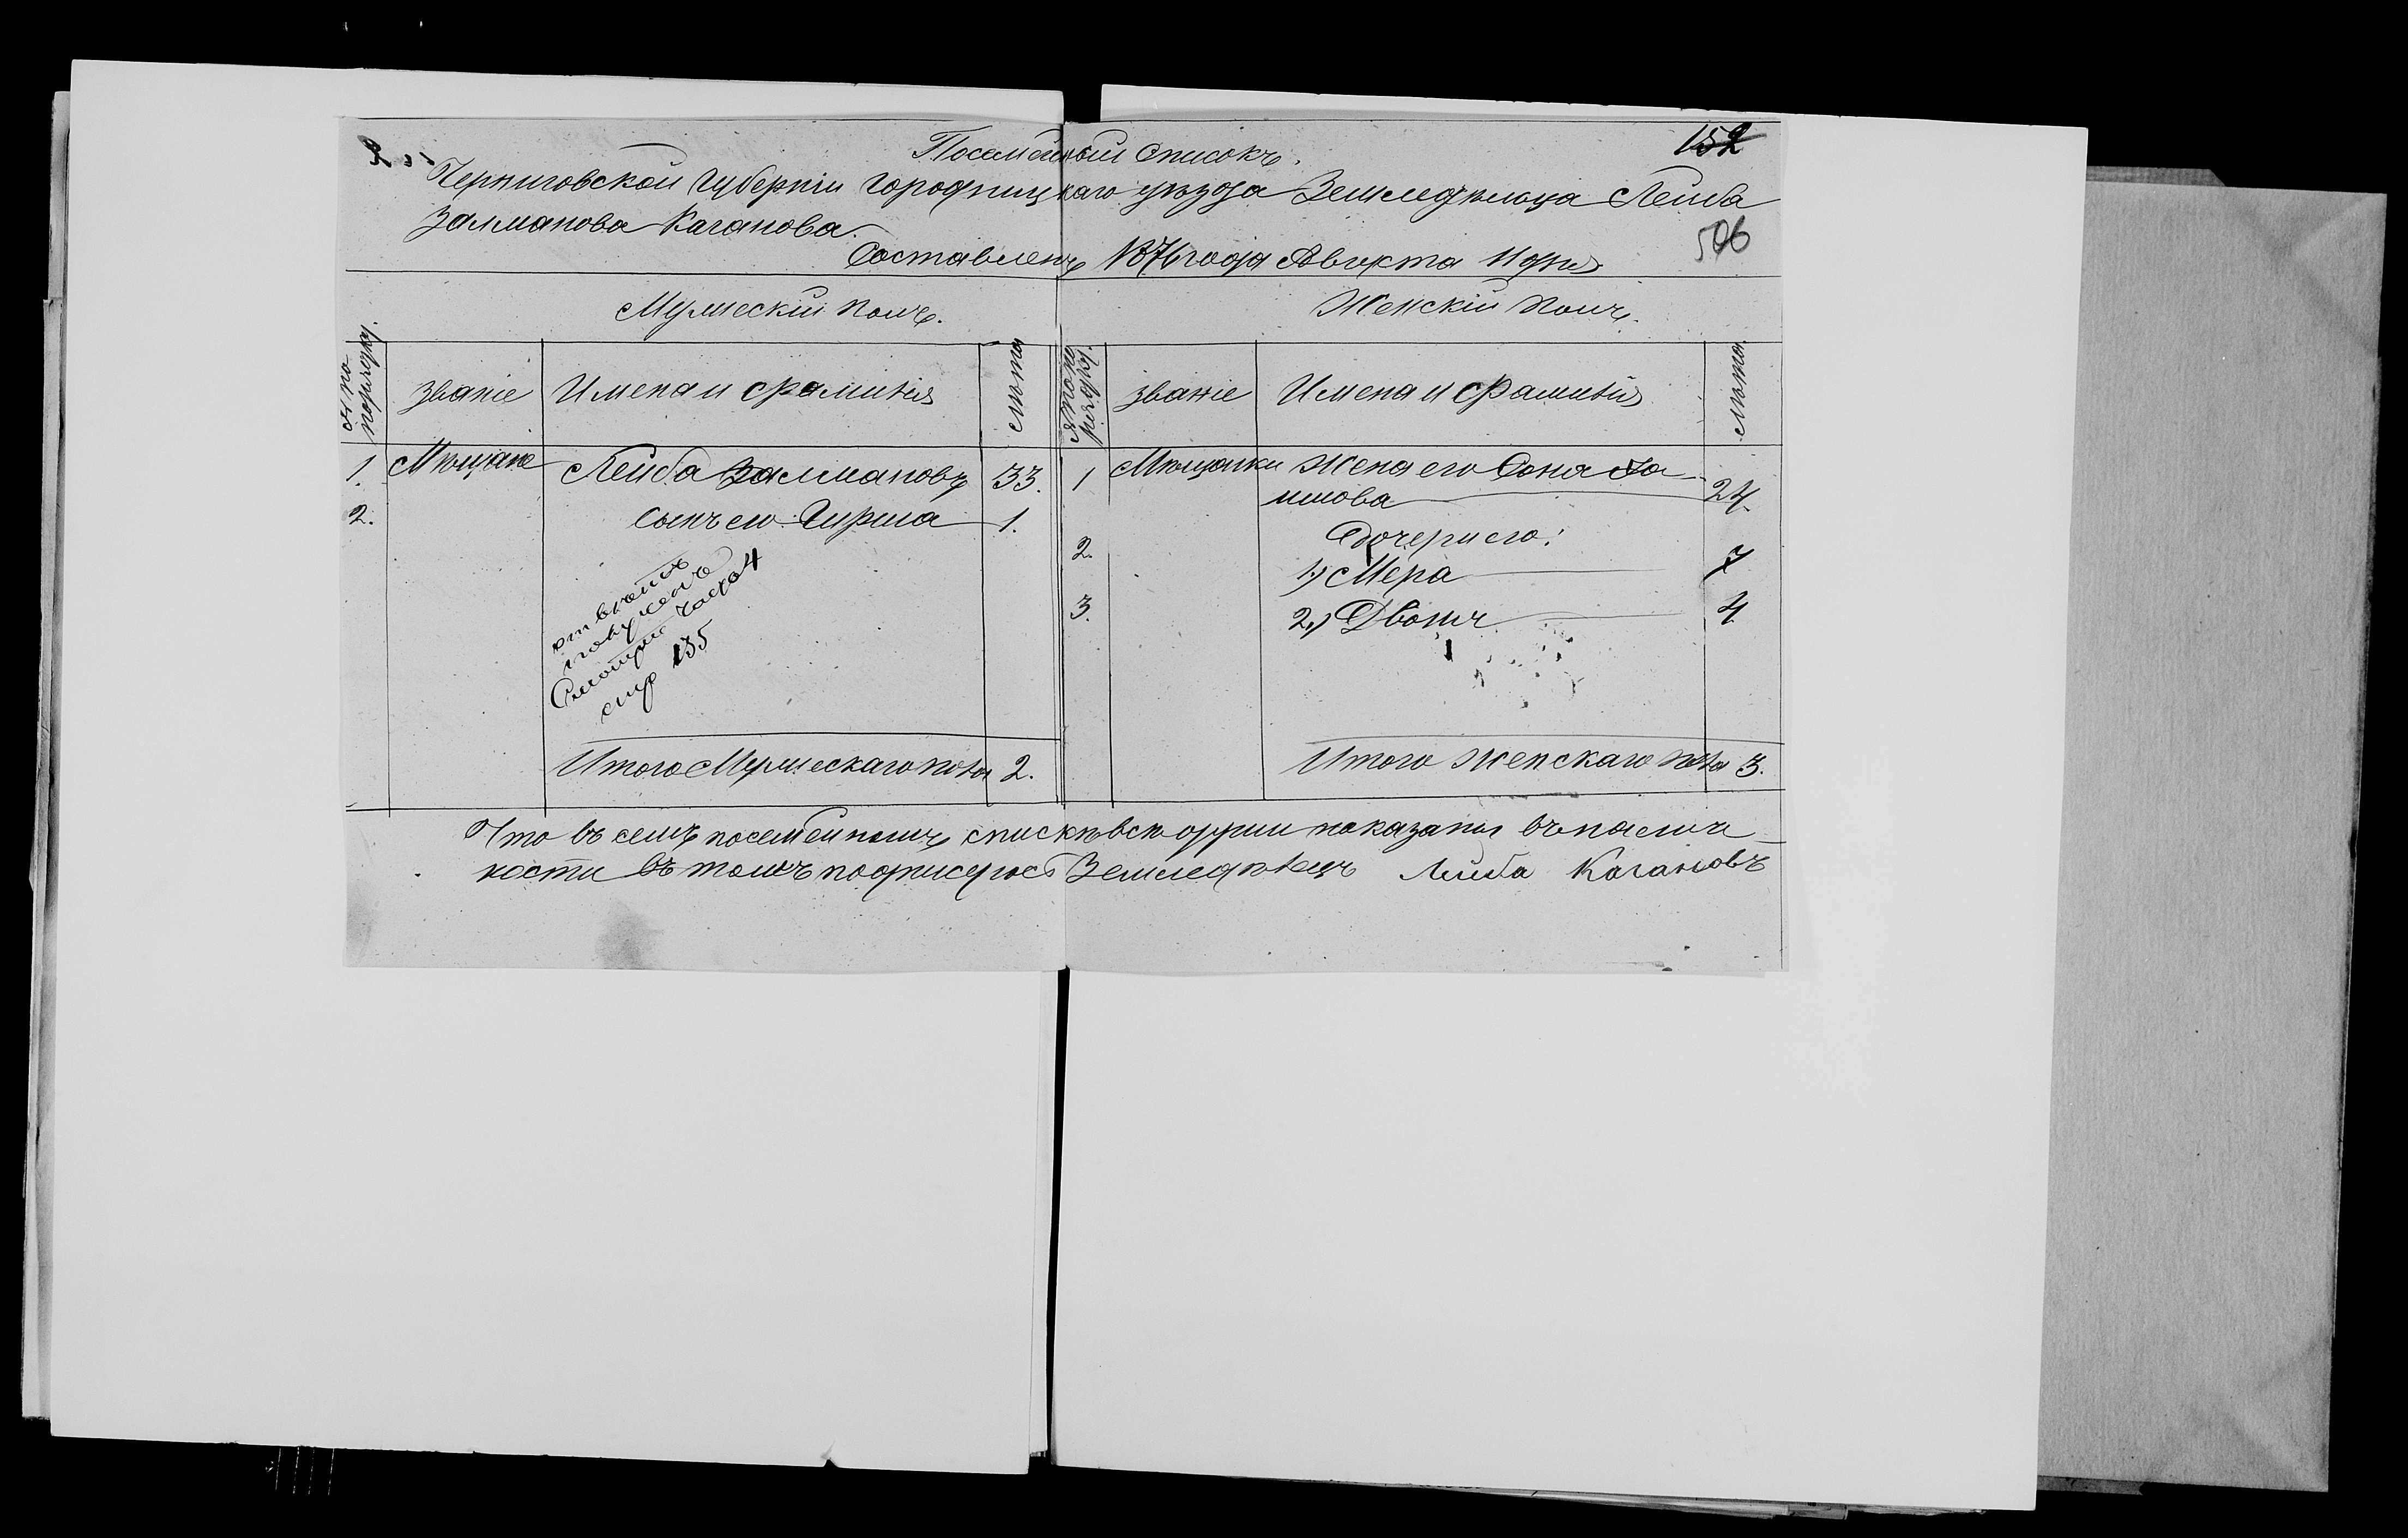 152
Посемейный Списокъ.
Черниговской Губерніи Городницкаго уѣзда Земледѣльца Лейба
Залманова Каганова.
506
Составленъ 1876 года Августа 11 дня
Мужескій полъ. Женскій полъ.
№ по порядку. Званіе Имена и Фамилія Лѣта № по порядку. Званіе Имена и Фамилія Лѣта.
1. Мѣщане Лейба Залмановъ 33. 1 Мѣщанки Жена его Соня
имова 24.
2. сынъ его Гирша 1.
2. Дочери его:
1.) Мера 7
3. 2.) Двоня 4
Смотри часть 4
стр 135
Итого Мужескаго пола 2. Итого Женскаго пола 3.
Что въ семъ посемейномъ спискѣ всѣ души показаны въ налич
ности въ томъ подписуюсь Земледѣлецъ Лейба Кагановъ